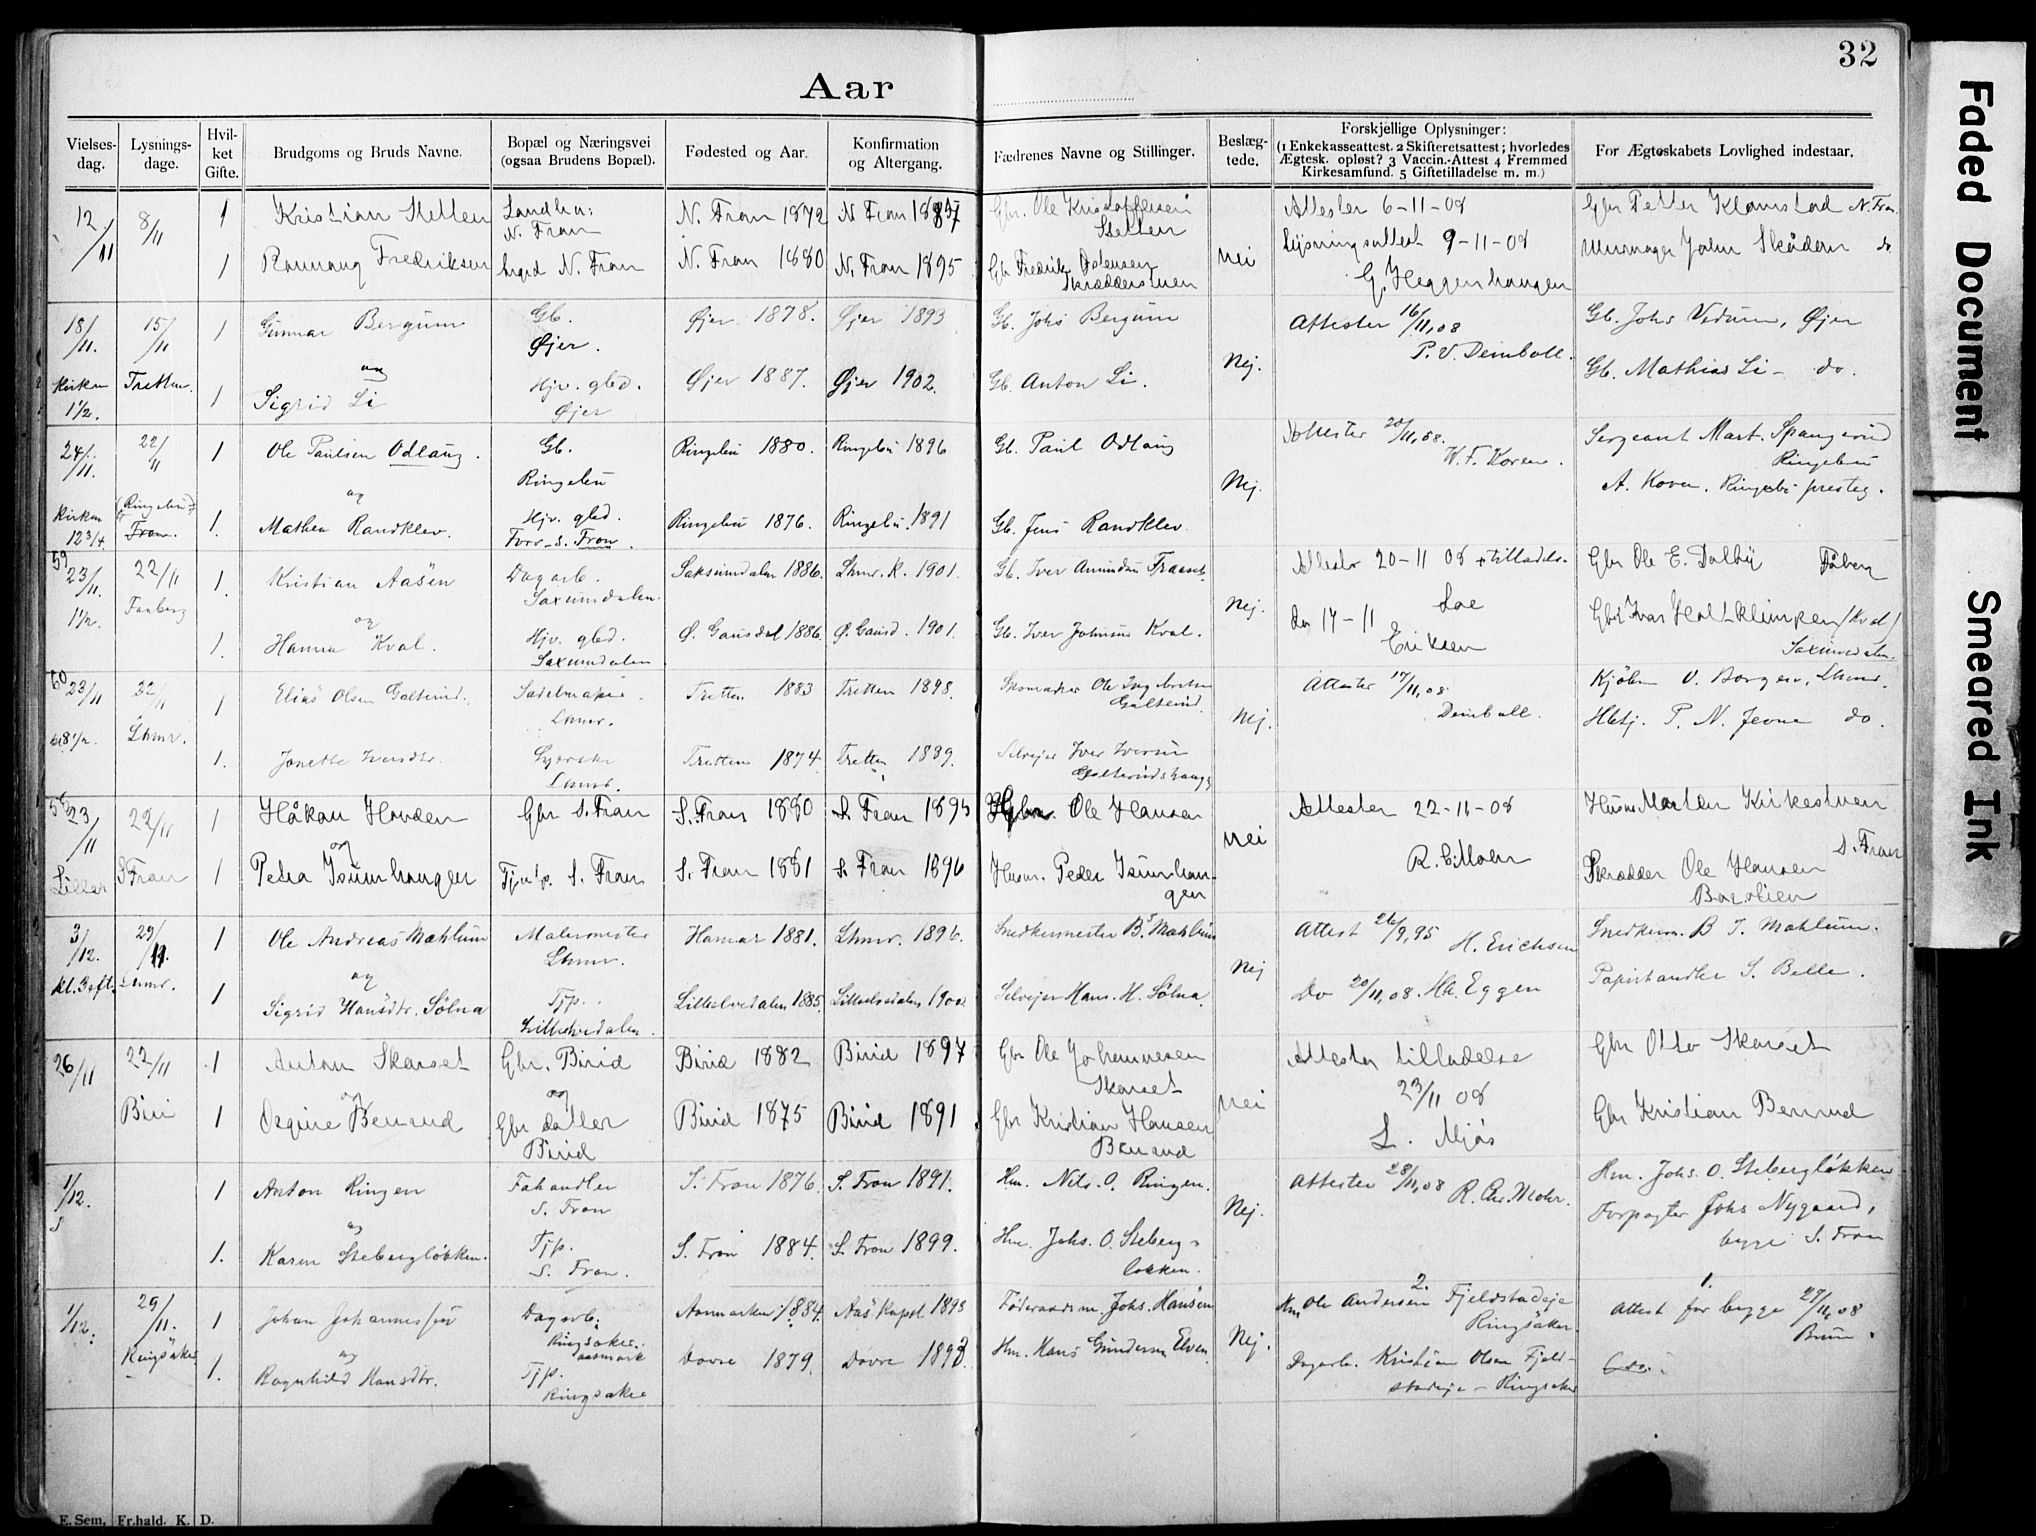 32
Aar
Vielses-
dag.
Lysnings-
dage.
Hvil-
ket
Gifte.
Brudgoms og Bruds Navne.
Bopæl og Næringsvei
(ogsaa Brudens Bopæl).
Fødested og Aar.
Konfirmation
og Altergang.
Fædrenes Navne og Stillinger.
Beslæg-
tede.
Forskjellige Oplysninger:
(1 Enkekasseattest. 2 Skifteretsattest; hvorledes
Ægtesk. opløst? 3 Vaccin.-Attest 4 Fremmed
Kirkesamfund. 5 Giftetilladelse m. m.)
For Ægteskabets Lovlighed indestaar.
12/11 8/11 1 Kristian Stellen Landha: N. Fron N. Fron 1872 N. Fron 1887 Gbr. Ole Kristoffersen Stellen Attester 6-11-08 Gbr Petter Klomstad N. Fron
1 Fredriksen N. Fron N. Fron 1880 N. Fron 1895 Gbr Fredrik nei Lysningsattest 9-11-08 G. Heggenhaugen Murmager John do
18/11. 15/11 1 Gunnar Bergum Gb. Øjer. Øjer 1878. Øjer 1893 Gb. Johs Bergum Attester 16/11,08 P. V. Deinboll. Gb. Johs Vedum, Øjer
Kirken 1 1/2. Tretten. og
1 Sigrid Li Hjv. gbd. Øjer Øjer 1887. Øjer 1902. Gb. Anton Li. Nej. Gb. Mathias Li - do.
24/11. 22/11 1 Ole Paulsen Odlaug. Gb. Ringebu Ringebu 1880. Ringebu 1896 Gb. Paul Odlaug Attester 20/11,08. W. F. Koren. Sergeant Mart. Spangerud Ringebu
Kirken 12 3/4. Ringebu Fron. og
1. Mathea Randklev. Hjv. gbd. Fron. Ringebu 1876. Ringebu. 1891 Gb. Jens Randklev. Nej. A. Ringebu presteg.
59
23/11. 22/11 1. Kristian Aasen Dagarb. Saxumdalen. Saksumdalen 1886. Lhmr. K. 1901. Gb. Iver Amundsen Attester 20-11 08 + tilladelse Gbr Ole E. Dalby Fåberg
1 1/2. Faaberg og
1. Hanna Kval. Hjv. gbd. Saxumdalen Ø. Gausdal 1886. Ø. Gausd. 1901. Gb. Iver Johnsen Kval. Nej. den 17-11 Eriksen Gbr Ivar (Kval) Saxumdalen.
60
23/11 22/11 1 Elias Olsen Galterud. Sadelmaker Lhmr. Tretten 1883 Tretten 1898. Skomaker Ole Ingebretsen Galterud Attester 17/11,08 Deinboll. Kjøbm O. Borgen, Lhmr.
8 1/2. Lhmr. 1. Jonette Iversdtr. Syerske Lhmr. Tretten 1874. Tretten 1889. Selvejer Iver Iversen Galterudshaugen Nej. Hbtj. P. N. Jevne do.
58
23/11 22/11 1 Håkon Hovden Gbr S. Fron S. Fron 1880 S. Fron 1895 Gbr. Ole Hansen Attester 22-11-08 Husm Marten Kirkestuen
og
Liller S Fron 1 Petra Isumhaugen Tjp. S. Fron S. Fron 1881 S. Fron 1896 Husm. Peder Isumhaugen nei R. Chr Mohr S. Fron Skrædder Ole Hansen
3/12. 29/11 1 Ole Andreas Mæhlum Malermester Lhmr. Hamar 1881. Lhmr. 1896. Snedkermester B. Mæhlum Attest 26/9,95 H. Erichsen Snedkerm. B J. Mæhlum.
Kl. 3 eft. Lhmr. og
1 Sigrid Hansdtr. Sølna Tjp. Lilleelvedalen. Lilleelvedalen 1885. Lilleelvedalen 1900. Selvejer Hans H. Sølna. Nej Do 20/11,08. Eggen Papirhandler S. Belle.
26/11 22/11 1 Anton Skarset Gbr. Birid Birid 1882 Birid 1897 Gbr Ole Johannesen Skarset Attester tilladelse Gbr Otto Skarset
Biri og og 23/11 08
1 Benrud Gbr datter Birid Birid 1875 Birid 1891 Gbr Kristian Hansen Benrud nei L. Mjøs Gbr Kristian Benrud
1/12. 1 Anton Ringen Fahandler S. Fron S. Fron 1876. S. Fron 1891. Hm. Nils O. Ringen. Attester 28/11,08 R. Chr. Mohr. Hm. Johs. O. Stebergløkken
og
1. Karen Stebergløkken. Tjp. S. Fron. S. Fron 1884. S. Fron 1899. Hm. Johs. O. Steberg-løkken. Nej. Forpagter Johs Nygaard, begge S. Fron
1/12. 29/11. 1 Johan Johannessen Dagarb. Ringsaker. aasmark Aasmarken 1884. Aas Kapel 1898 Føderaadsm. Johs. Hansen 2. Hm Ole Andersen Fjeldstadeje Ringsaker. 1. Attest for begge 27/11,08 Bruun.
Ringsaker og
1. Ragnhild Hansdtr. Tjp. Ringsaker Dovre 1879. Dovre 1893. Hm. Hans Gundersen Elven Nej. Dagarb. Kristian Olsen Fjeld-stadeje - Ringsaker
E. Sem, Fr.hald. K. D.
Faded Document
Smeared Ink